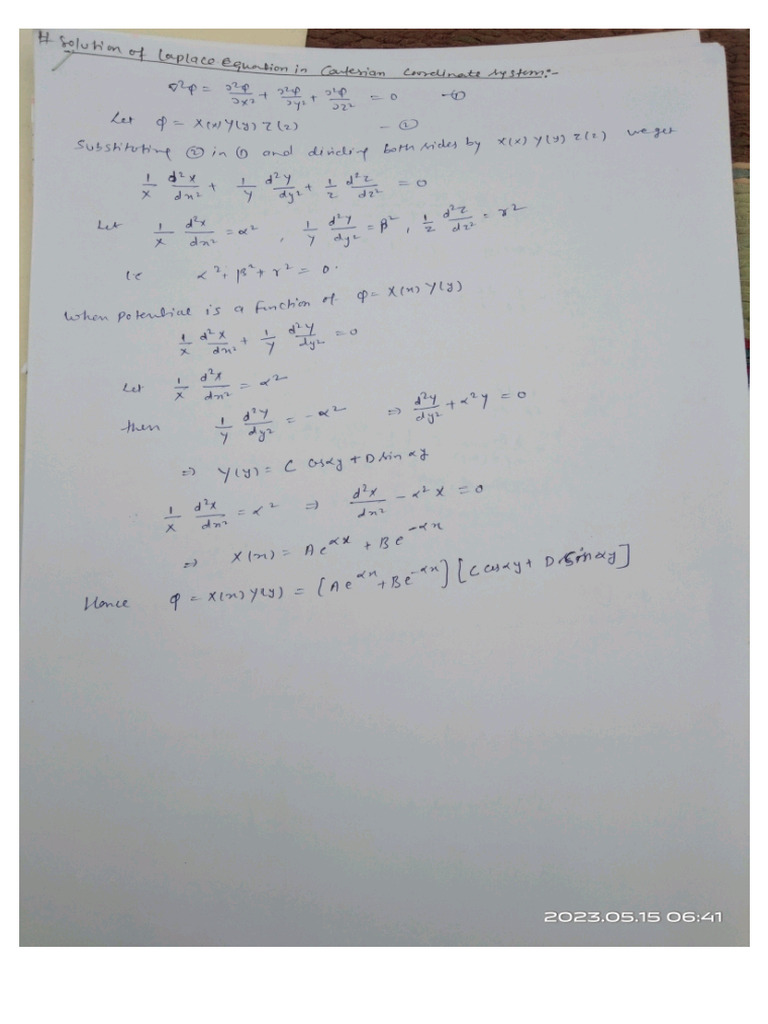 # Solution of Laplace Equation in Cartesian Coordinate system:-
∇²φ = ∂²φ/∂x² + ∂²φ/∂y² + ∂²φ/∂z² = 0 —①
Let φ = X(x) Y(y) Z(z) —②
Substituting ② in ① and dividing both sides by X(x) Y(y) Z(z) we get
1/X d²X/dx² + 1/Y d²Y/dy² + 1/Z d²Z/dz² = 0
Let 1/X d²X/dx² = α², 1/Y d²Y/dy² = β², 1/Z d²Z/dz² = γ²
ie α² + β² + γ² = 0.
When potential is a function of φ = X(x) Y(y)
1/X d²X/dx² + 1/Y d²Y/dy² = 0
Let 1/X d²X/dx² = α²
then 1/Y d²Y/dy² = -α² ⇒ d²y/dy² + α²y = 0
⇒ Y(y) = C cosαy + D sinαy
1/X d²X/dx² = α² ⇒ d²X/dx² - α²X = 0
⇒ X(x) = Ae^αx + Be^-αx
Hence φ = X(x) Y(y) = [Ae^αx + Be^-αx] [C cosαy + D sinαy]
2023.05.15 06:41